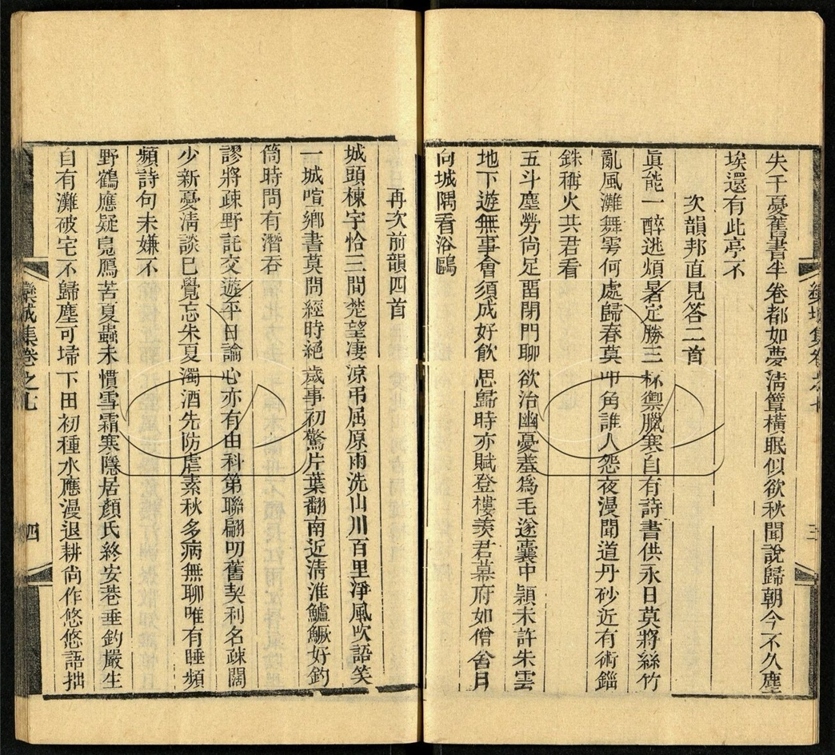 失千憂舊書半卷都如夢清簟橫眠似欲秋聞說歸朝今不久塵
埃還有此亭不
次韻邦直見答二首
眞能一醉逃煩暑定勝三杯禦臘寒自有詩書供永日莫將絲竹
亂風灘舞雩何處歸春莫叩角誰人怨夜漫聞道丹砂近有術錙
銖稱火共君看
五斗塵勞尚足留閉門聊欲治幽憂羞爲毛遂囊中穎未許朱雲
地下遊無事會須成好飲思歸時亦賦登樓羨君幕府如僧舍日
向城隅看浴鷗
欒城集卷之七
三
再次前韻四首
城頭棟宇恰三間楚望凄凉弔屈原雨洗山川百里淨風吹語笑
一城喧鄉書莫問經時絕歲事初驚片葉翻南近清淮鱸鱖好釣
筒時問有潛吞
謬將疎野託交遊平日論心亦有由科第聯翩叨舊契利名疎闊
少新憂淸談已覺忘朱夏濁酒先防虐素秋多病無聊唯有睡頻
頻詩句未嫌不
野鶴應疑鳧鴈苦夏蟲未慣雪霜寒隱居顏氏終安巷垂釣嚴生
自有灘破宅不歸塵可埽下田初種水應漫退耕尚作悠悠語拙
欒城集卷之七
四